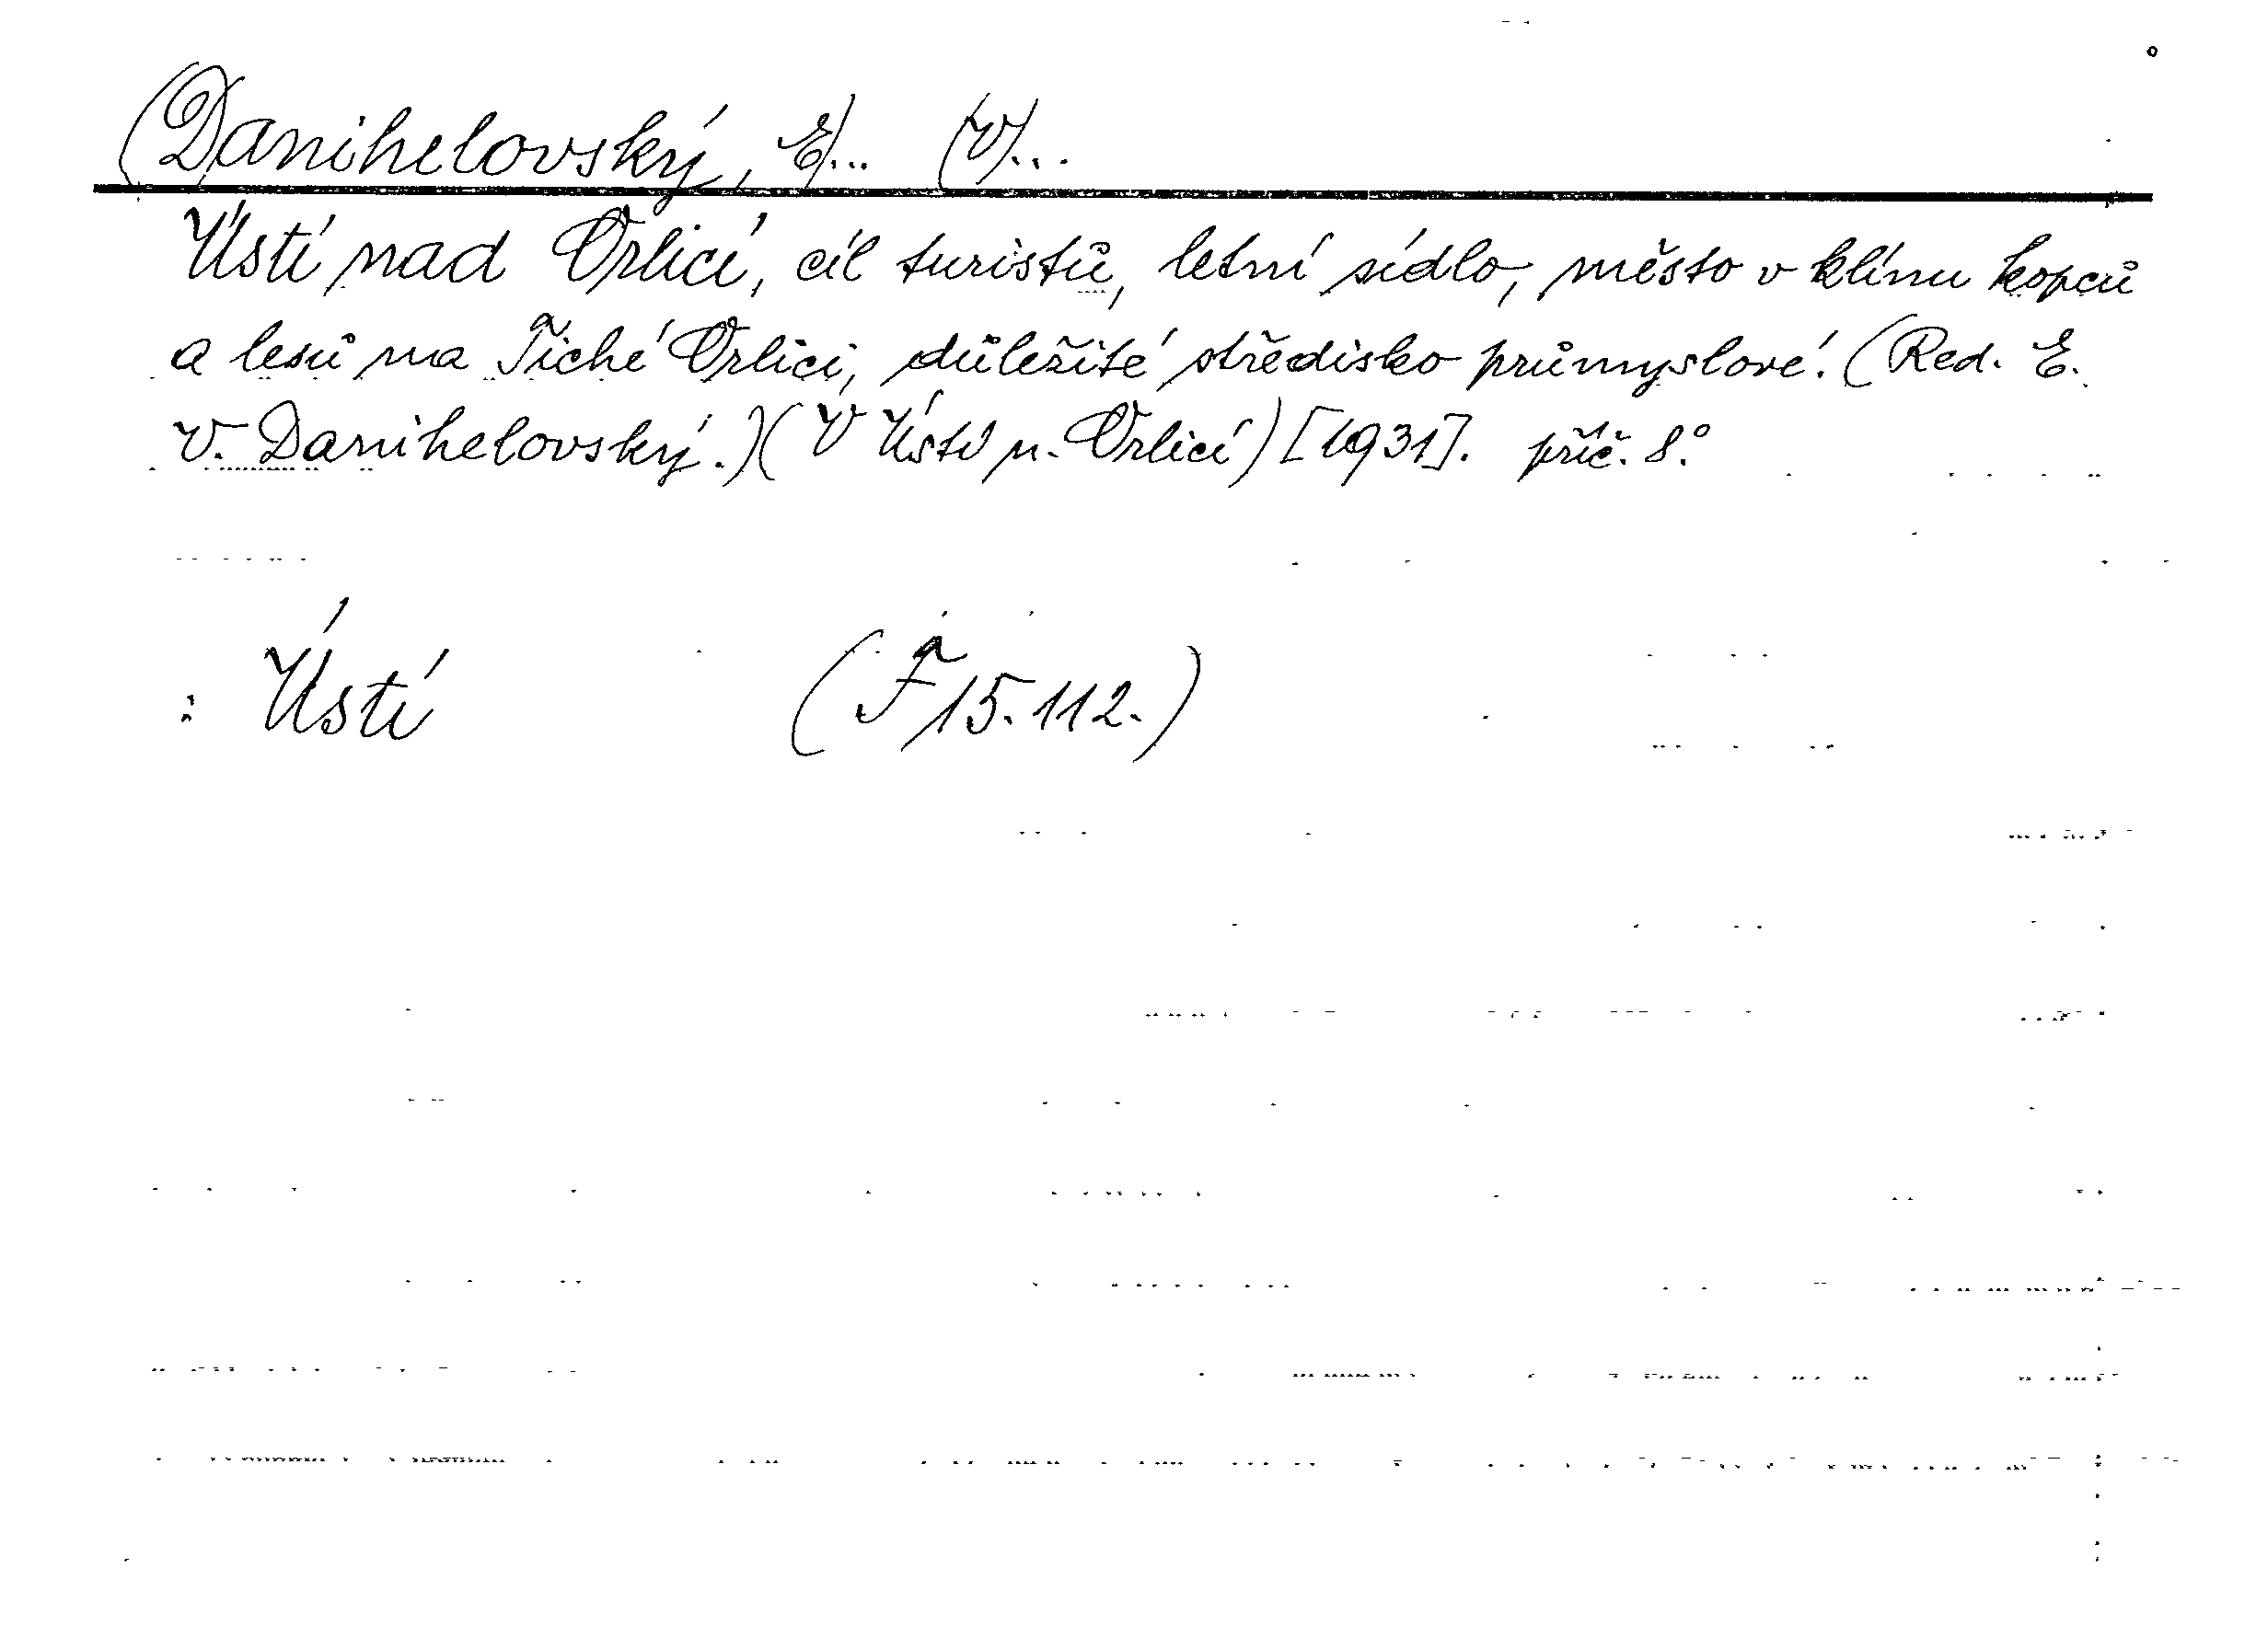 (Danihelovský, E)... (V)...
Ústí nad Orlicí, cíl turistů, letní sídlo, město v klínu kopců
a lesů na Tiché Orlici, důležité středisko průmyslové. (Red. E.
V. Danihelovský.)(V Ústí n. Orlicí) [1931]. příč. 8.°
: Ústí (F 15.112.)